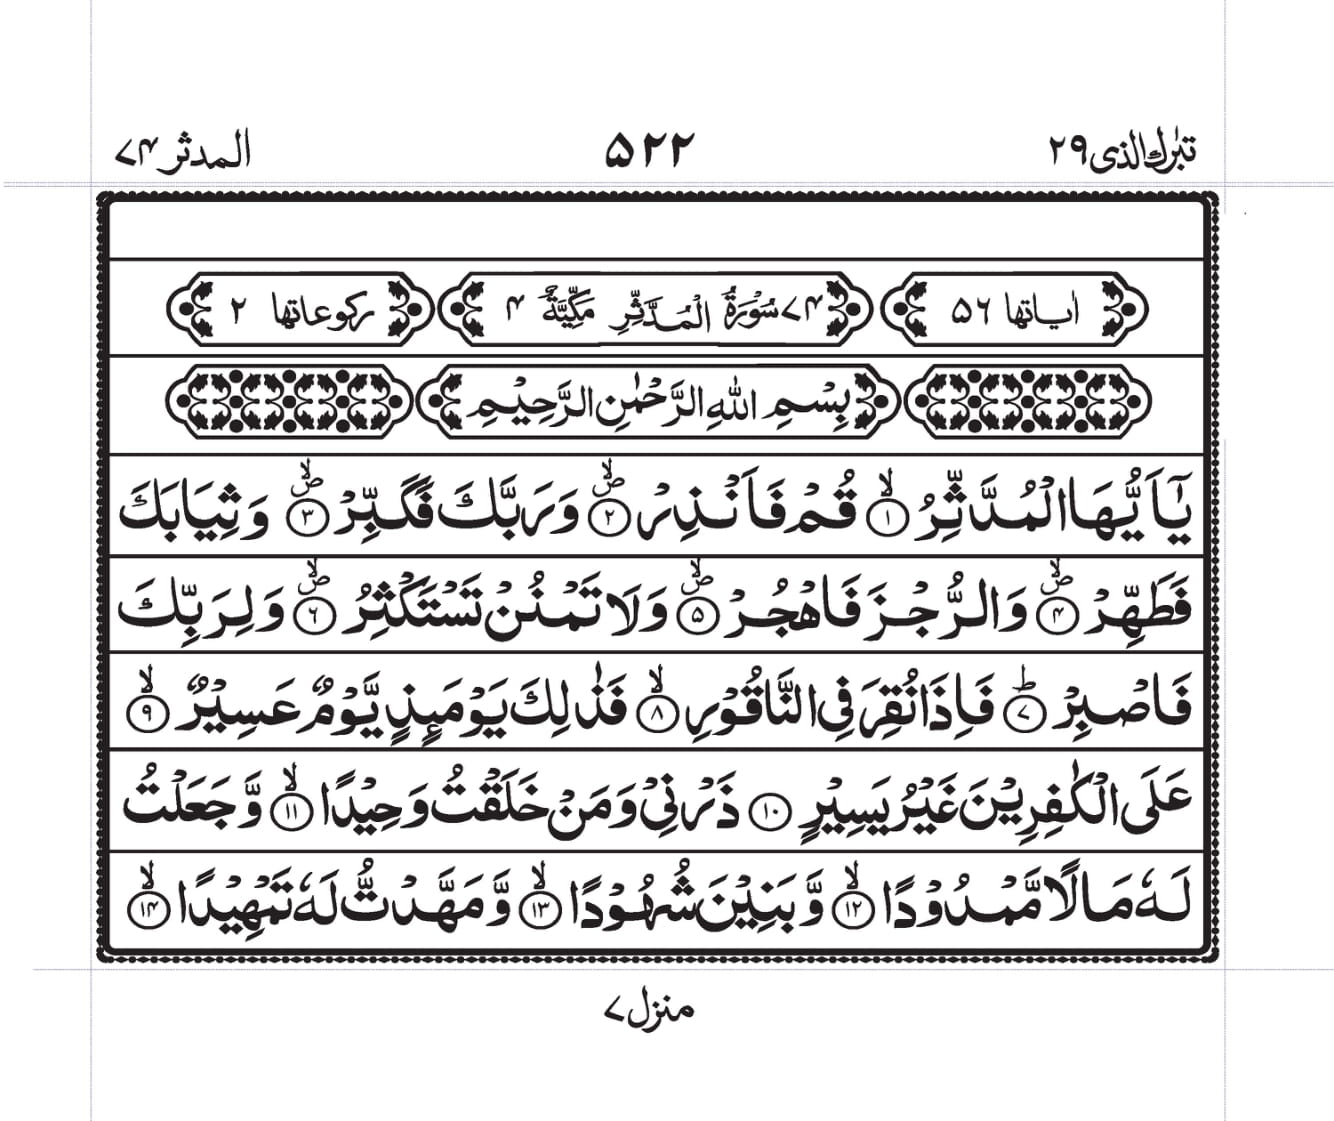 تبٰرك الذی ٢٩ ۵٢٢ المدثر ٧۴
اٰیاتها ۵٦ ٧۴ سُوْرَةُ الْمُدَّثِّرِ مَكِّیَّةٌ ۴ رکوعاتها ٢
بِسْمِ اللّٰهِ الرَّحْمٰنِ الرَّحِیْمِ
یٰۤاَیُّهَا الْمُدَّثِّرُۙ ﴿۱﴾ قُمْ فَاَنْذِرْ۪ۙ ﴿۲﴾ وَرَبَّكَ فَكَبِّرْ۪ۙ ﴿۳﴾ وَثِیَابَكَ
فَطَهِّرْ۪ۙ ﴿۴﴾ وَالرُّجْزَ فَاهْجُرْ۪ۙ ﴿۵﴾ وَلَا تَمْنُنْ تَسْتَكْثِرُ۪ۙ ﴿۶﴾ وَلِرَبِّكَ
فَاصْبِرْؕ ﴿۷﴾ فَاِذَا نُقِرَ فِی النَّاقُوْرِۙ ﴿۸﴾ فَذٰلِكَ یَوْمَىِٕذٍ یَّوْمٌ عَسِیْرٌۙ ﴿۹﴾
عَلَی الْكٰفِرِیْنَ غَیْرُ یَسِیْرٍ ﴿۱۰﴾ ذَرْنِیْ وَمَنْ خَلَقْتُ وَحِیْدًاۙ ﴿۱۱﴾ وَّجَعَلْتُ
لَهٗ مَالًا مَّمْدُوْدًاۙ ﴿۱۲﴾ وَّبَنِیْنَ شُهُوْدًاۙ ﴿۱۳﴾ وَّمَهَّدْتُّ لَهٗ تَمْهِیْدًاۙ ﴿۱۴﴾
منزل ٧